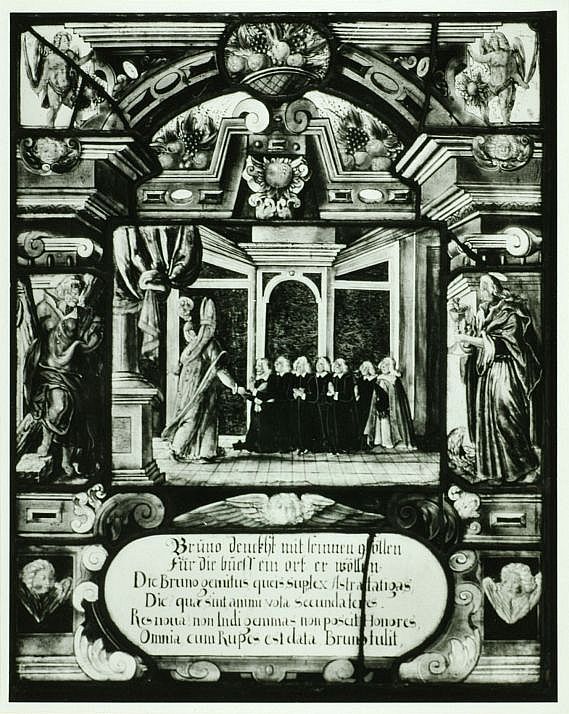 Bruno denckht mit seinnen gsöllen
Für die buess ein ort er wöllen.
Die Bruno genitus queis suplex Astra fatigas,
Die quæ sint animi vota secunda feres.
Res noua! non Indi gemmas non poscit Honores,
Omnia cum Rupes est data Bruno tulit.